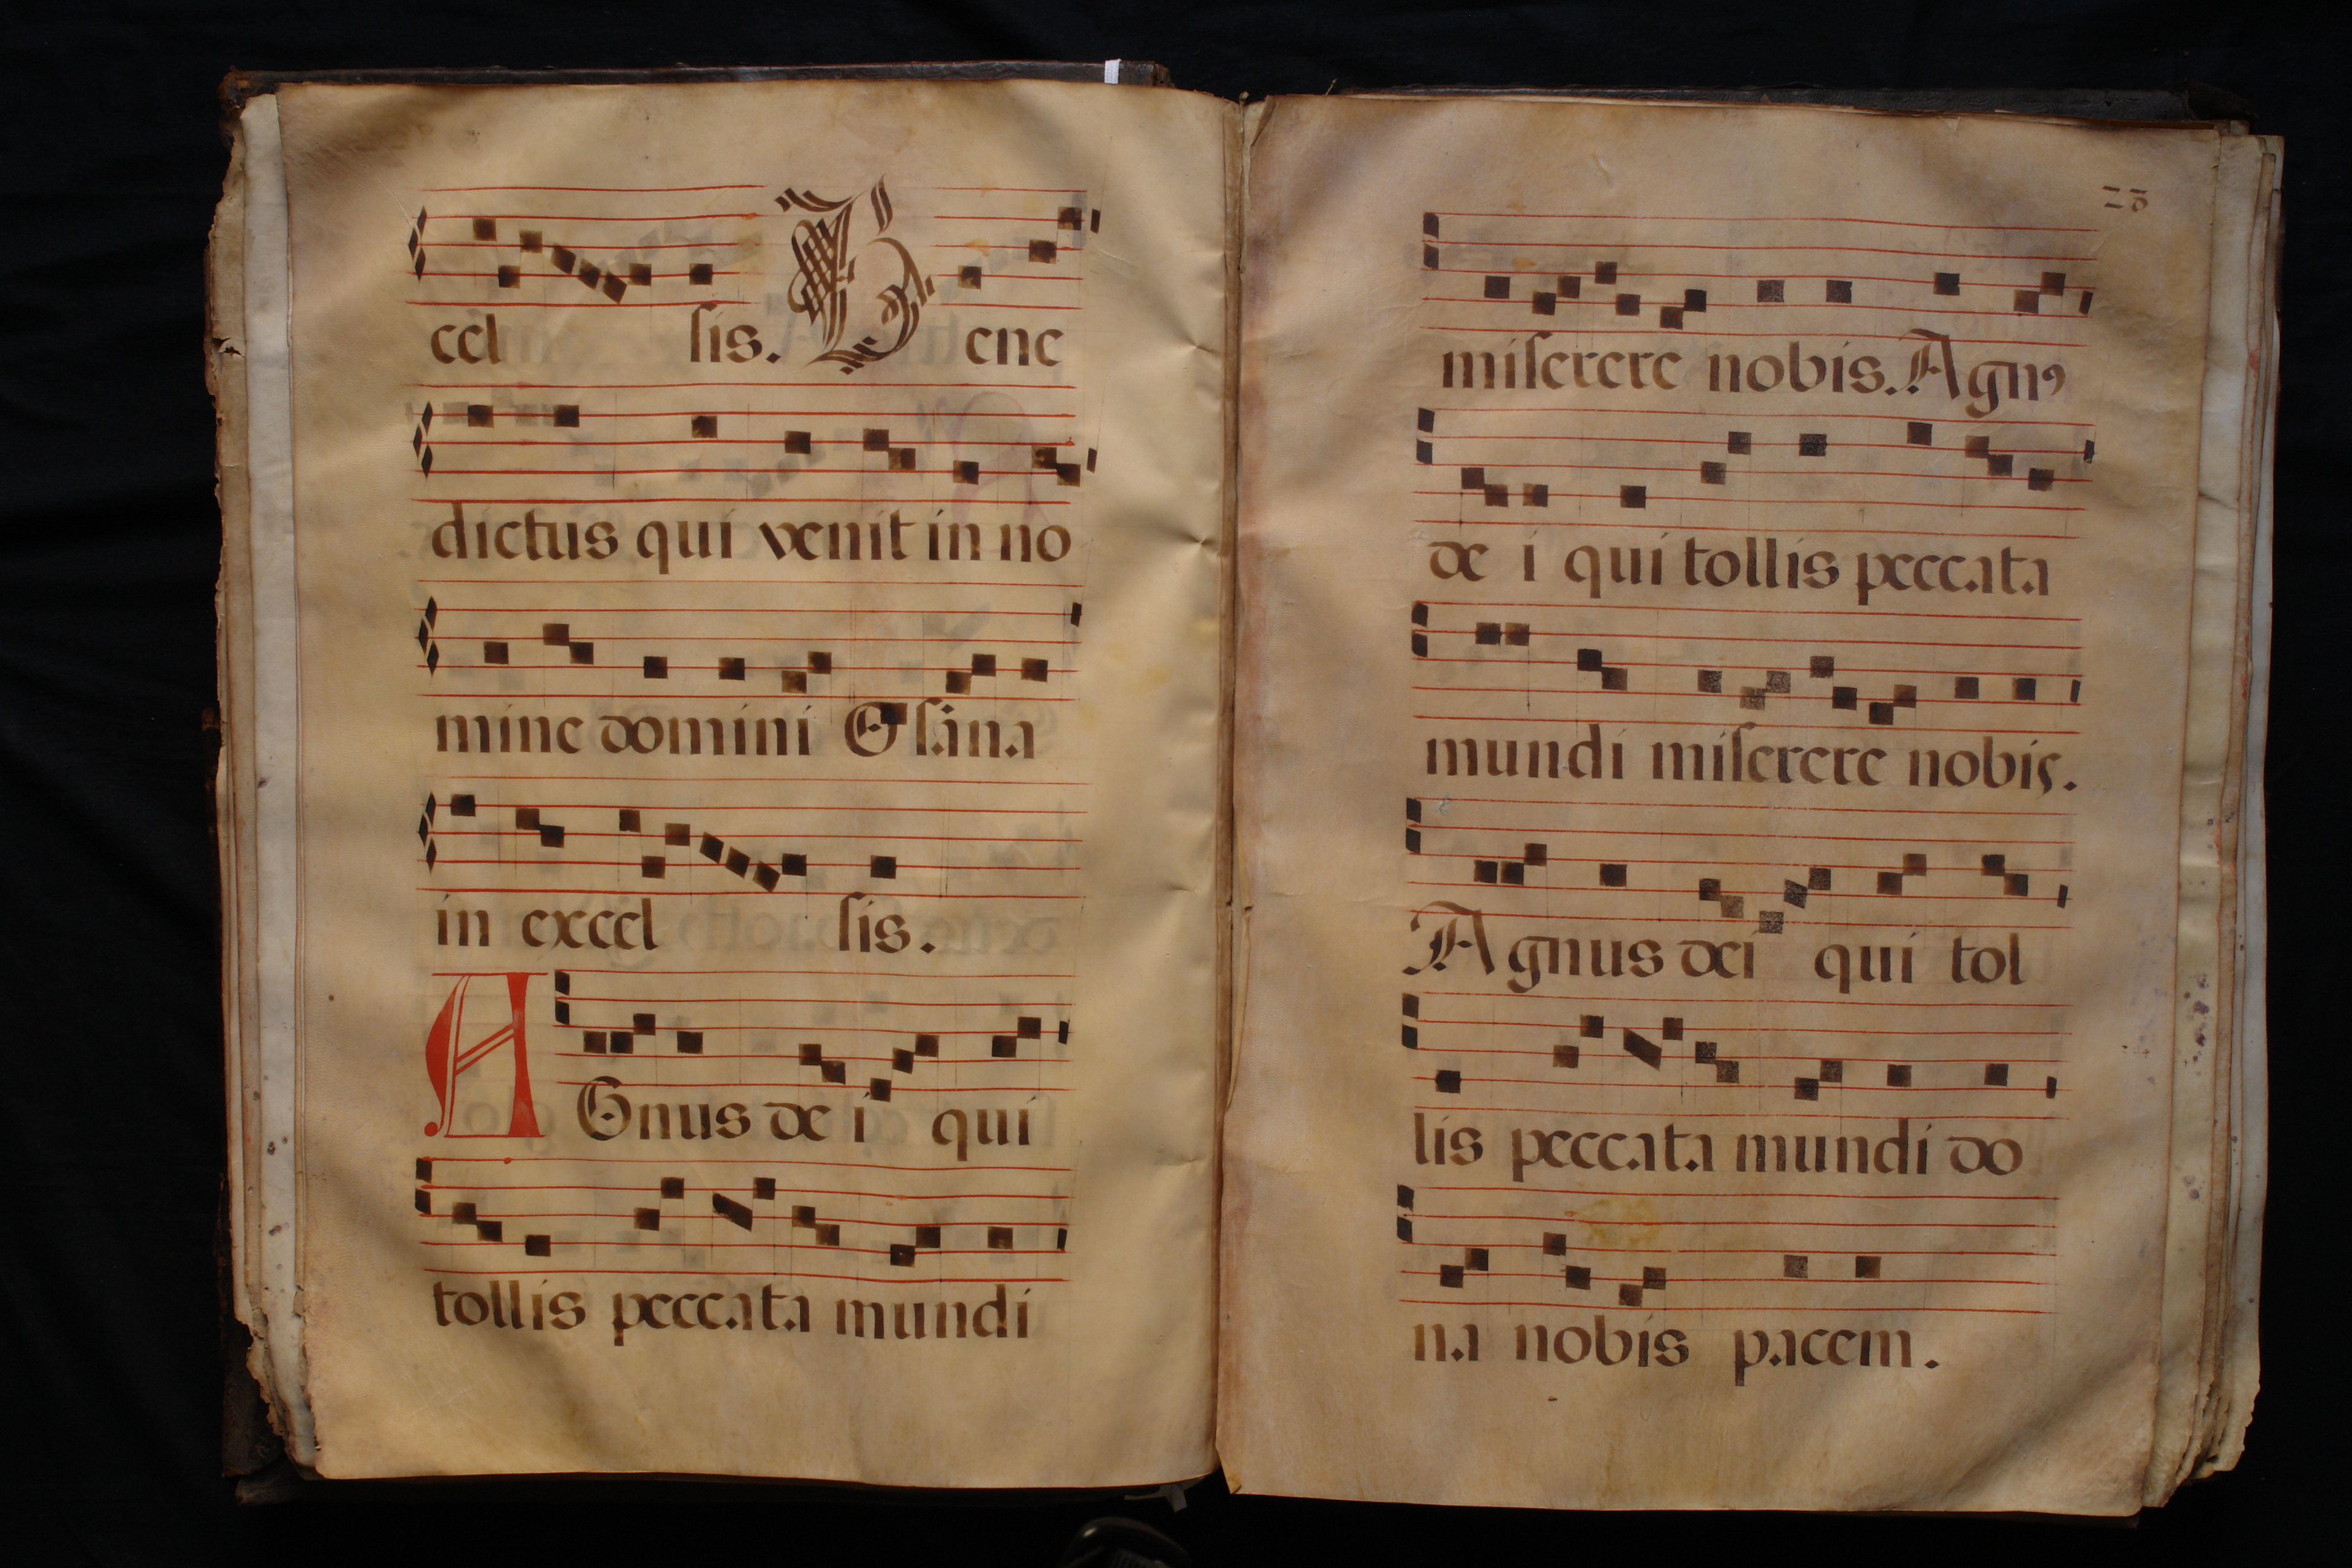 cel sis. Bene
dictus qui venit in no
mine domini Osana
in excel sis.
AGnus de i qui
tollis peccata mundi
25
miserere nobis. Agnꝰ
de i qui tollis peccata
mundi miserere nobis.
Agnus dei qui tol
lis peccata mundi do
na nobis pacem.